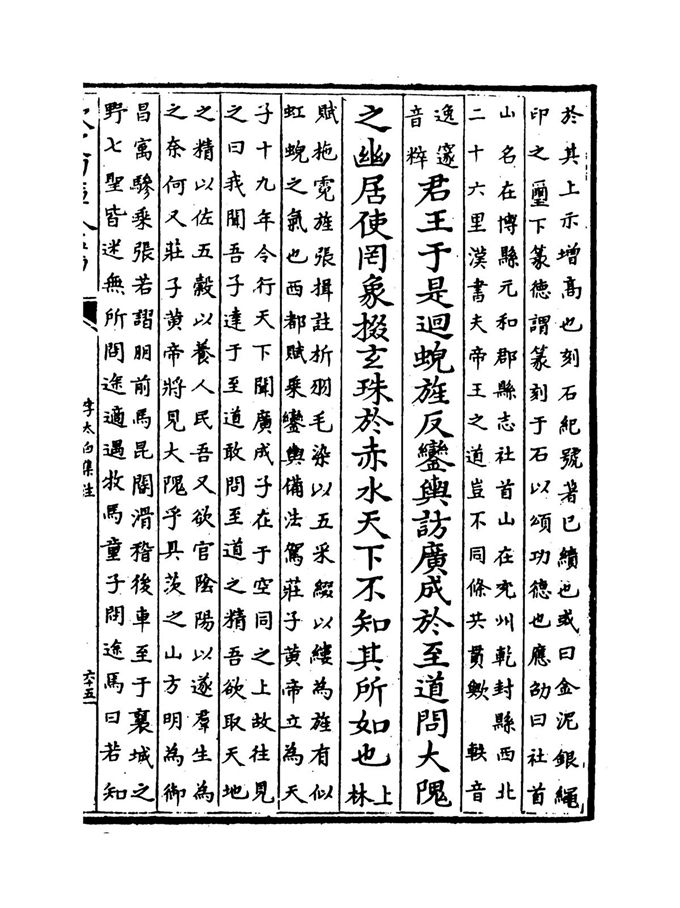 於其上示增高也刻石紀號著已績也或曰金泥銀繩
印之璽下篆德謂篆刻于石以頌功德也應劭曰社首
山名在博縣元和郡縣志社首山在兖州乾封縣西北
二十六里漢書夫帝王之道豈不同條共貫歟 軼音
逸邃
音粹
君王于是迴蜺旌反鑾輿訪廣成於至道問大隗
之幽居使罔象掇玄珠於赤水天下不知其所如也
上
林
賦拖霓旌張揖註析羽毛染以五采綴以縷為旌有似
虹蜺之氣也西都賦乘鑾輿備法駕莊子黄帝立為天
子十九年令行天下聞廣成子在于空同之上故往見
之曰我聞吾子達于至道敢問至道之精吾欲取天地
之精以佐五穀以養人民吾又欲官陰陽以遂羣生為
之奈何又莊子黄帝將見大隗乎具茨之山方明為御
昌㝢驂乘張若謵朋前馬昆閽滑稽後車至于襄城之
野七聖皆迷無所問途適遇牧馬童子問途馬曰若知
李太白集注
六十五